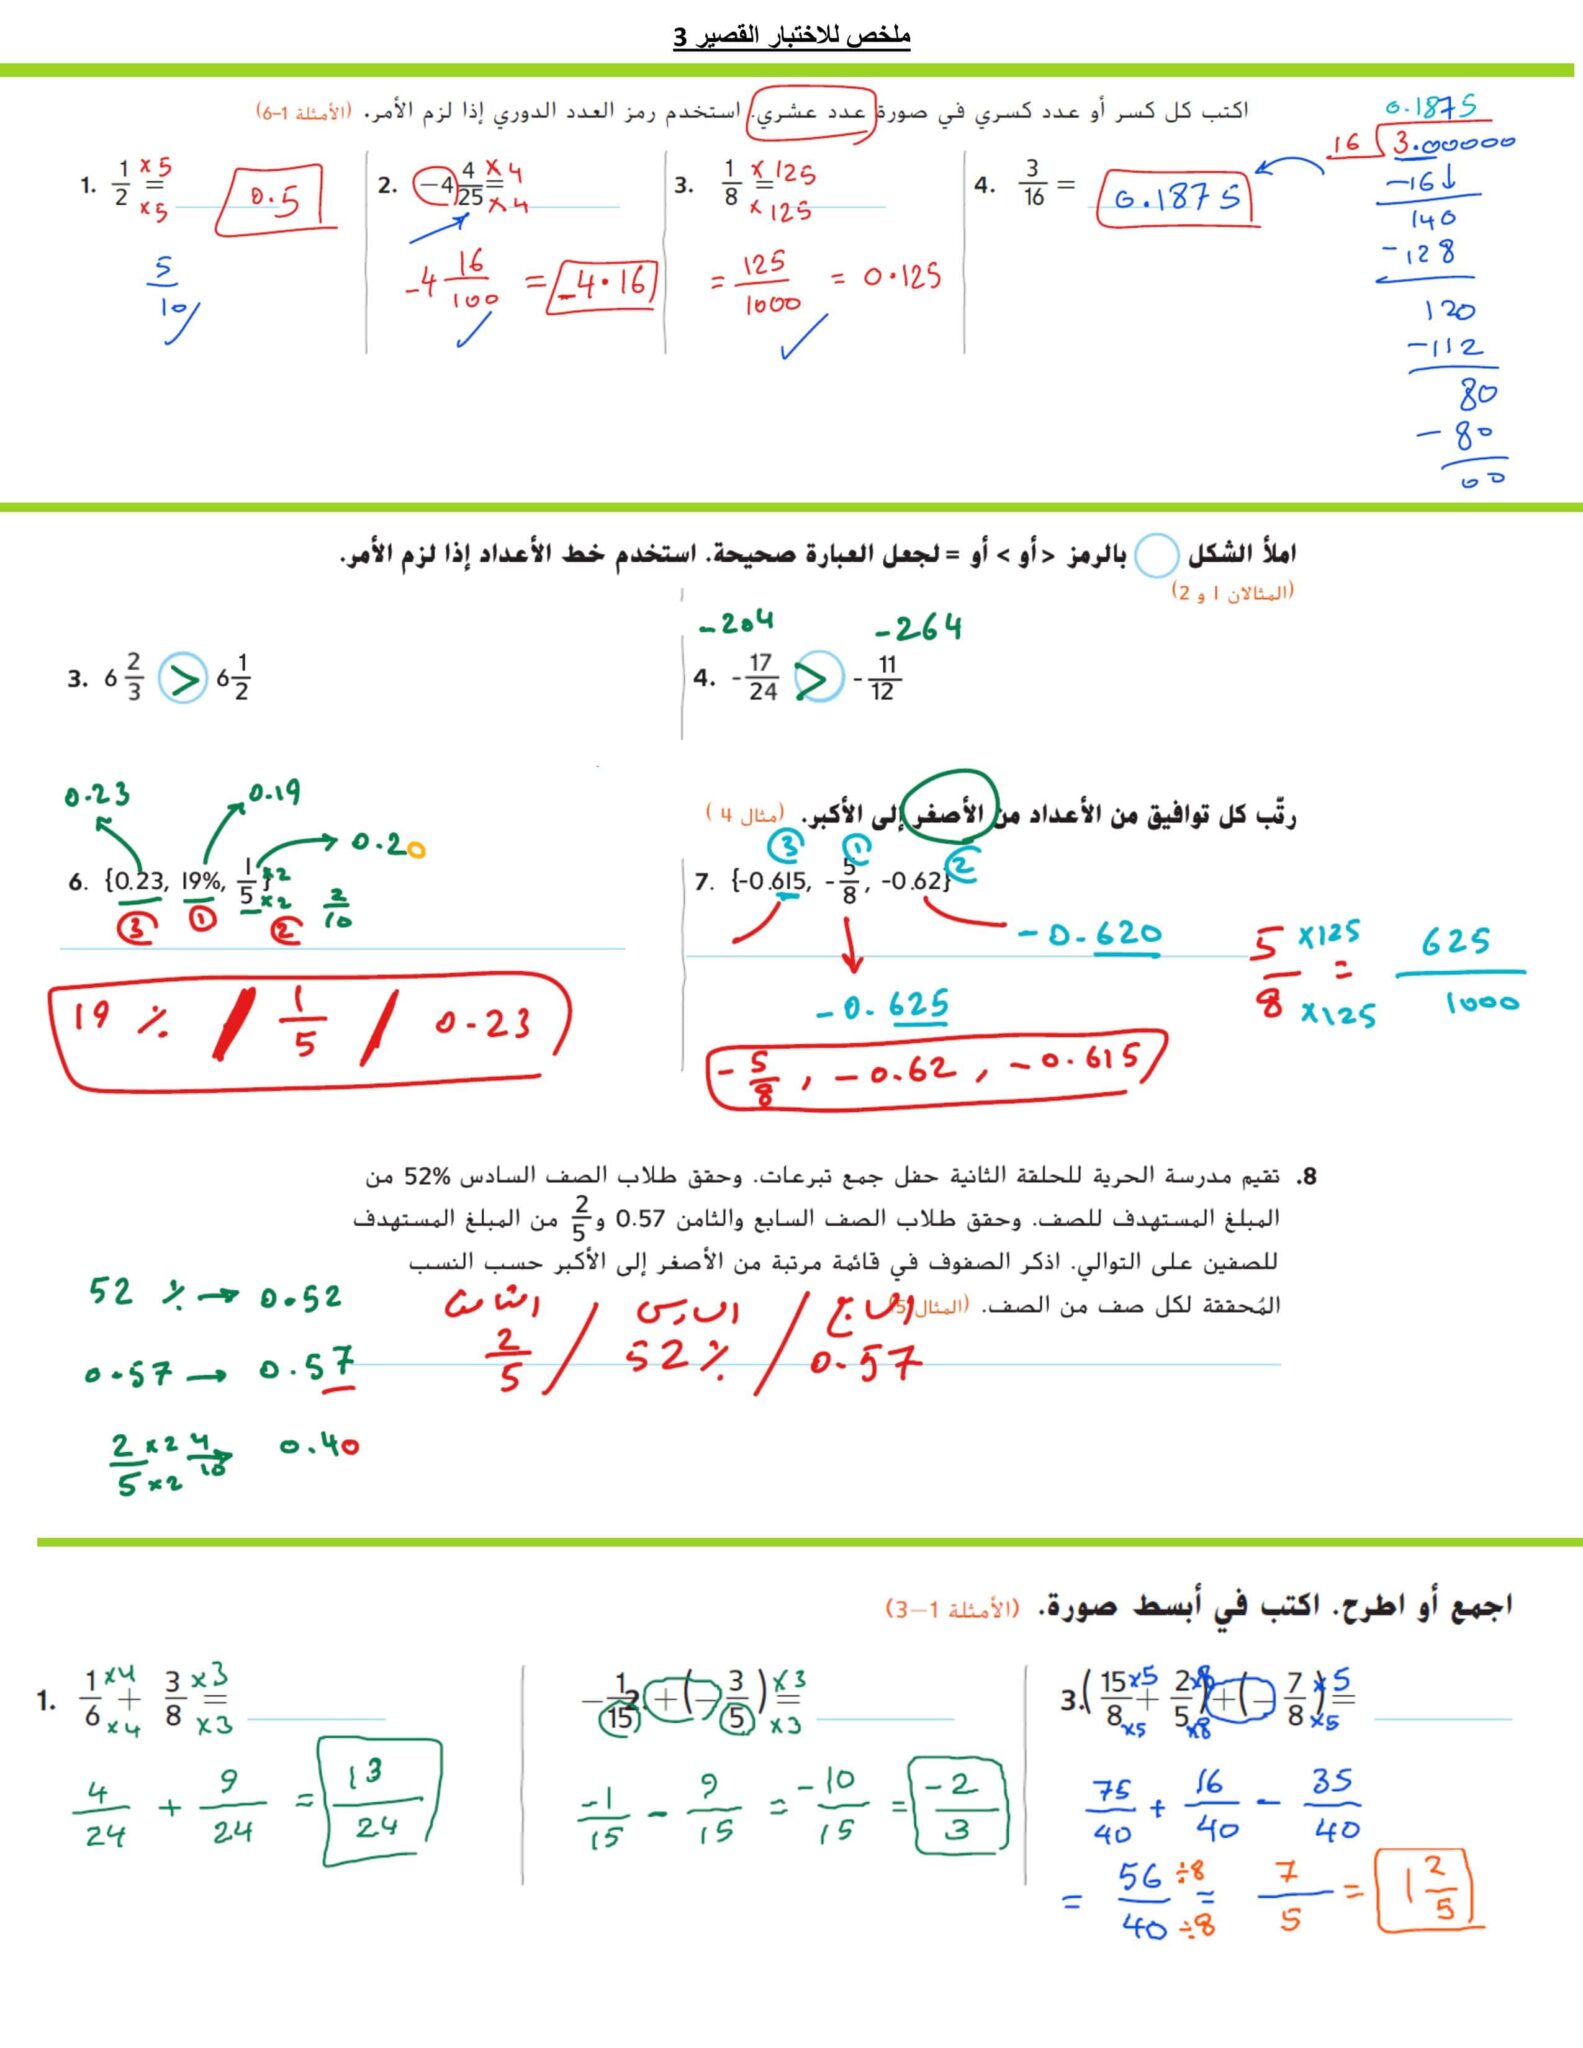 ملخص للاختبار القصير 3
اكتب كل كسر أو عدد كسري في صورة عدد عشري. استخدم رمز العدد الدوري إذا لزم الأمر. (الأمثلة 1-6)
1. 1/2 = ×5 ×5 0.5
5/10
2. -4 4/25 = ×4 ×4
-4 16/100 = -4.16
3. 1/8 = ×125 ×125
= 125/1000 = 0.125
4. 3/16 = 0.1875
0.1875
16 3.00000
-16
140
-128
120
-112
80
-80
00
املأ الشكل ○ بالرمز < أو > أو = لجعل العبارة صحيحة. استخدم خط الأعداد إذا لزم الأمر.
(المثالان 1 و 2)
3. 6 2/3 > 6 1/2
-204 -264
4. -17/24 > -11/12
رتّب كل توافيق من الأعداد من الأصغر إلى الأكبر. (مثال 4)
0.23 0.19 0.20
6. {0.23, 19%, 1/5} ×2 ×2 2/10
3 1 2
19 % / 1/5 / 0.23
3 1 2
7. {-0.615, -5/8, -0.62}
-0.620
-0.625
5/8 ×125 ×125 = 625/1000
-5/8 , -0.62 , -0.615
8. تقيم مدرسة الحرية للحلقة الثانية حفل جمع تبرعات. وحقق طلاب الصف السادس 52% من
المبلغ المستهدف للصف. وحقق طلاب الصف السابع والثامن 0.57 و 2/5 من المبلغ المستهدف
للصفين على التوالي. اذكر الصفوف في قائمة مرتبة من الأصغر إلى الأكبر حسب النسب
المُحققة لكل صف من الصف. (المثال 5)
52 % → 0.52
0.57 → 0.57
2/5 ×2 ×2 4/10 → 0.40
2/5 / 52 % / 0.57
اجمع أو اطرح. اكتب في أبسط صورة. (الأمثلة 1–3)
1. 1/6 ×4 ×4 + 3/8 ×3 ×3 =
4/24 + 9/24 = 13/24
2. -1/15 + (-3/5) ×3 ×3 =
-1/15 - 9/15 = -10/15 = -2/3
3. (15/8 ×5 ×5 + 2/5 ×8 ×8) + (-7/8) ×5 ×5 =
75/40 + 16/40 - 35/40
= 56/40 ÷8 ÷8 = 7/5 = 1 2/5